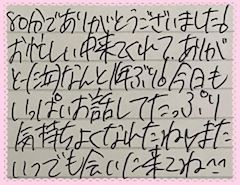 80分でありがとうございました!
おやさしい中来てくれてありが
と(泣)なんと1年ぶり!今日も
いっぱいお話してたっぷり
気持ちよくなれたねしまた
いつでも会いに来てね〜